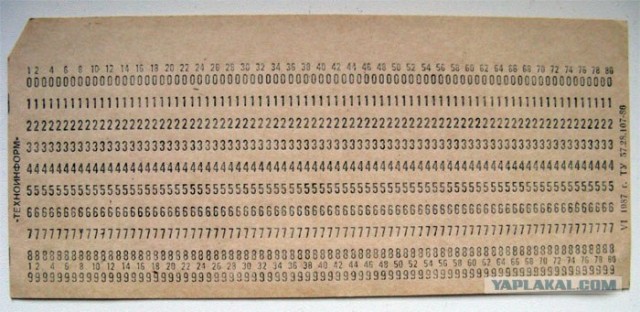 1 2 4 6 8 10 12 14 16 18 20 22 24 26 28 30 32 34 36 38 40 42 44 46 48 50 52 54 56 58 60 62 64 66 68 70 72 74 76 78 80
00000000000000000000000000000000000000000000000000000000000000000000000000000000
11111111111111111111111111111111111111111111111111111111111111111111111111111111
22222222222222222222222222222222222222222222222222222222222222222222222222222222
33333333333333333333333333333333333333333333333333333333333333333333333333333333
44444444444444444444444444444444444444444444444444444444444444444444444444444444
55555555555555555555555555555555555555555555555555555555555555555555555555555555
66666666666666666666666666666666666666666666666666666666666666666666666666666666
77777777777777777777777777777777777777777777777777777777777777777777777777777777
88888888888888888888888888888888888888888888888888888888888888888888888888888888
1 2 4 6 8 10 12 14 16 18 20 22 24 26 28 30 32 34 36 38 40 42 44 46 48 50 52 54 56 58 60 62 64 66 68 70 72 74 76 78 80
99999999999999999999999999999999999999999999999999999999999999999999999999999999
«ТЕХНОИНФОРМ»
VI 1987 г. ТУ
YAPLAKAL.COM